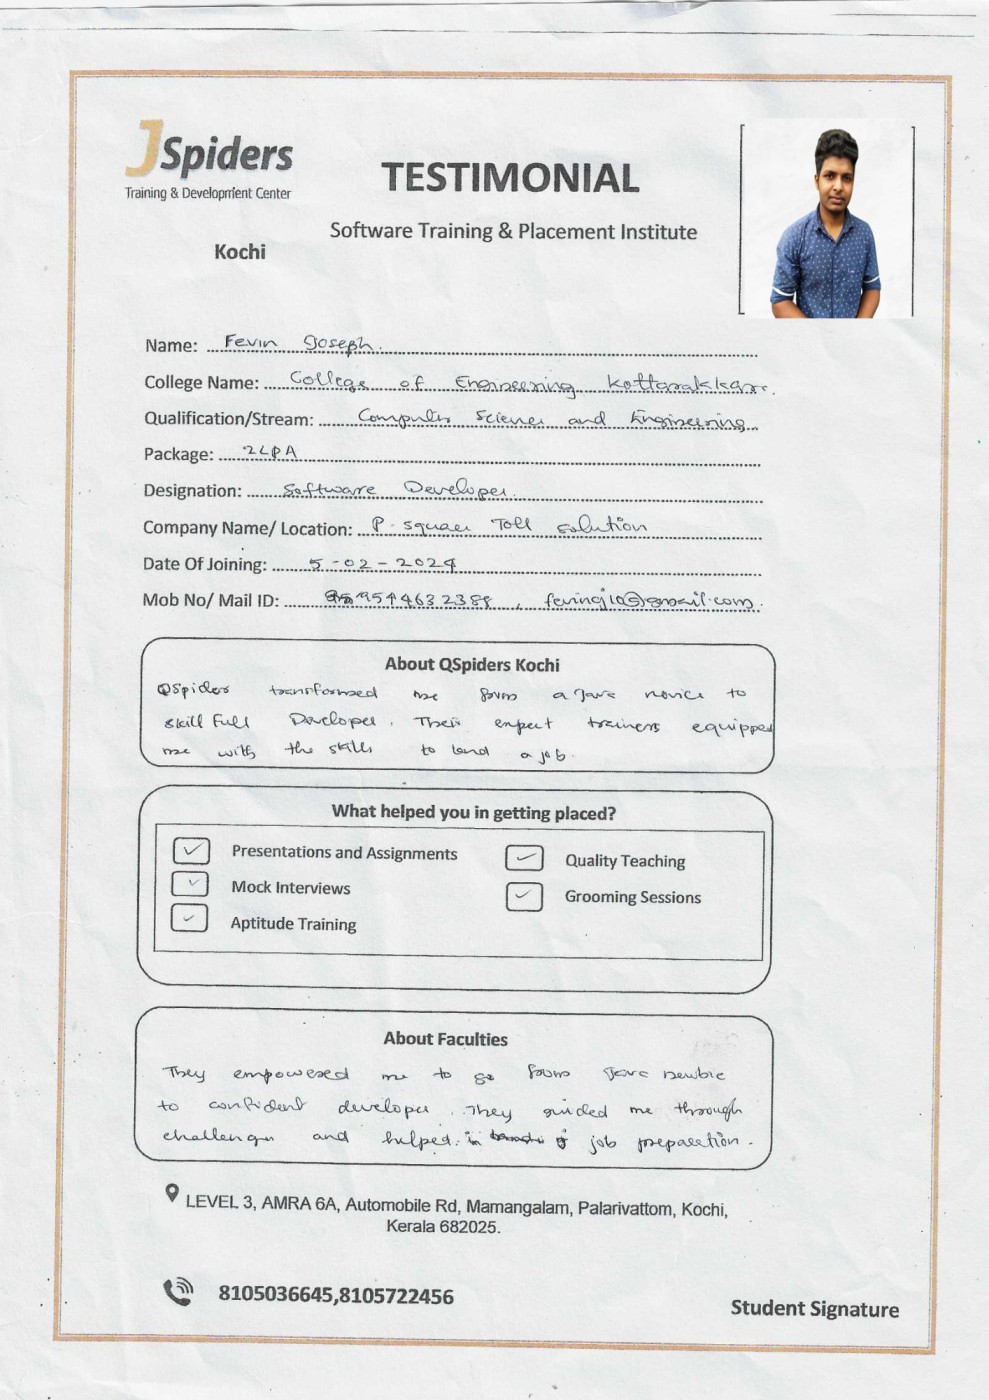 JSpiders
Training & Development Center
TESTIMONIAL
Software Training & Placement Institute
Kochi
Name: Fevin Joseph.
College Name: College of Engineering Kottarakkara.
Qualification/Stream: Computer Science and Engineering
Package: 2LPA
Designation: Software Developer.
Company Name/ Location: P-square Toll solution
Date Of Joining: 5-02-2024
Mob No/ Mail ID: , fevingj10@gmail.com.
About QSpiders Kochi
QSpiders transformed me from a Java novice to
skill Full Developer. Their expert trainers equipped
me with the skills to land a job.
What helped you in getting placed?
Presentations and Assignments
Quality Teaching
Mock Interviews
Grooming Sessions
Aptitude Training
About Faculties
They empowered me to go from Java newbie
to confident developer. They guided me through
challenges and helped in job preparation.
LEVEL 3, AMRA 6A, Automobile Rd, Mamangalam, Palarivattom, Kochi,
Kerala 682025.
8105036645,8105722456
Student Signature